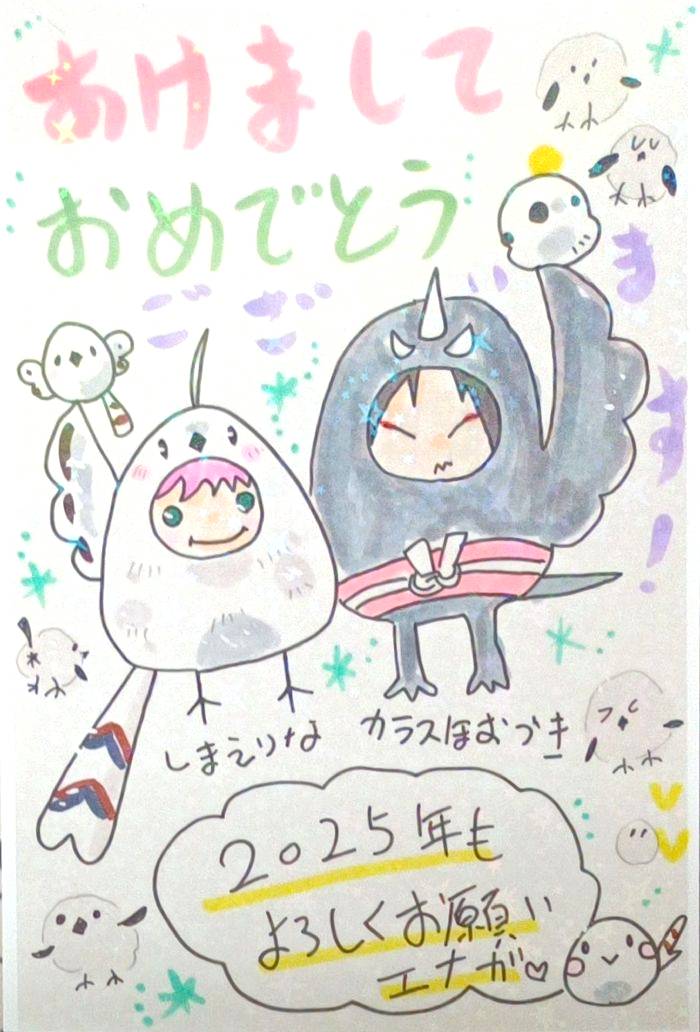 あけまして
おめでとう
ございます!
しまえりな
カラスほむづき
2025年も
よろしくお願い
エナガ♡